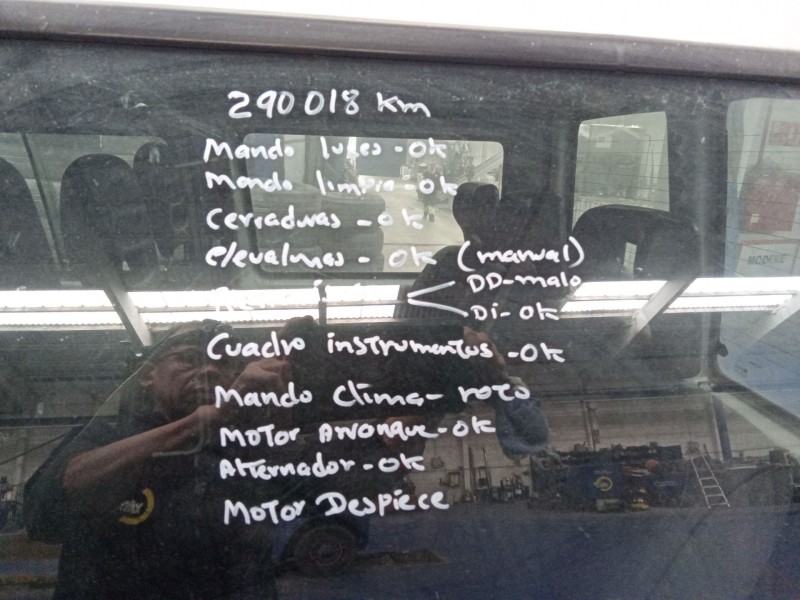 290 018 km
Mando luces - ok
Mando limpia - ok
Cerraduras - ok
elevalunas - ok (manual)
DD-malo
Di-ok
Cuadro instrumentos - ok
Mando Clima - roto
Motor Arranque - ok
Alternador - ok
Motor Despiece